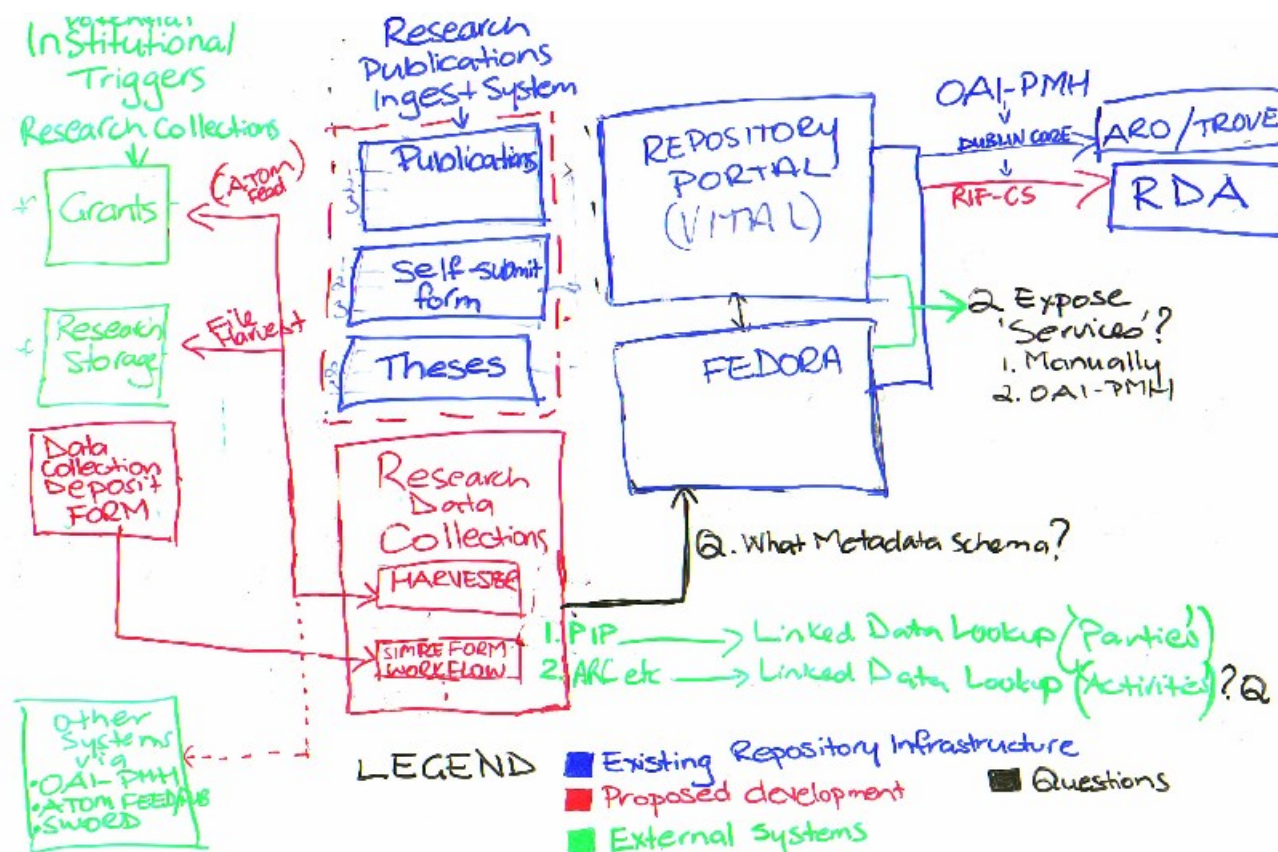 Potential
Institutional
Triggers
Research Collections
Grants
(ATOM
Feed)
Research
Storage
File
Harvest
Data
Collection
Deposit
FORM
Other
Systems
via
•OAI-PMH
•ATOM FEED/PUB
•SWORD
Research
Publications
Ingest System
Publications
Self-submit
form
Theses
Research
Data
Collections
HARVESTER
SIMPLE FORM
WORKFLOW
REPOSITORY
PORTAL
(VITAL)
FEDORA
OAI-PMH
DUBLIN CORE
RIF-CS
ARO/TROVE
RDA
Q Expose
'Services'?
1. Manually
2. OAI-PMH
Q. What Metadata Schema?
1. PIP Linked Data Lookup (Parties)
2. ARC etc Linked Data Lookup (Activities)? Q
LEGEND
Existing Repository Infrastructure
Proposed development
External Systems
Questions